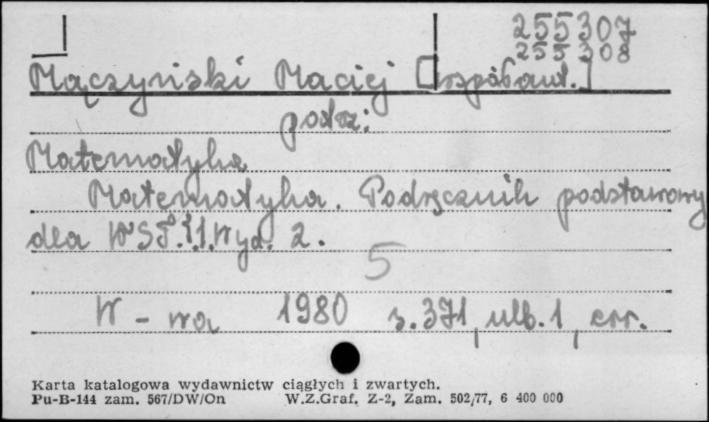 255307
255308
Mączyński Maciej [współaut.]
patrz:
Matematyka
Matematyka. Podręcznik podstawowy
dla WSP. Wyd. 2.
5
W-wa 1980 s. 371, nlb. 1, err.
Karta katalogowa wydawnictw ciągłych i zwartych.
Pu-B-144 zam. 567/DW/On W.Z.Graf. Z-2, Zam. 502/77, 6 400 000